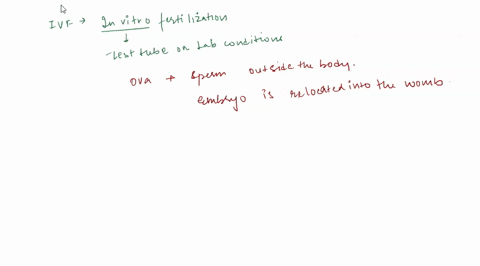 IVF → In vitro fertilization
↓
- test tube or Lab conditions
ova + sperm outside the body.
embryo is relocated into the womb.